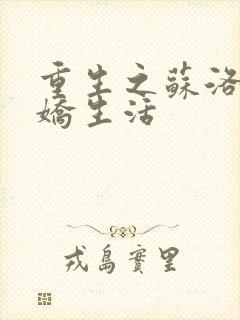 重生之蘇洛
嬌生活
戎島實里